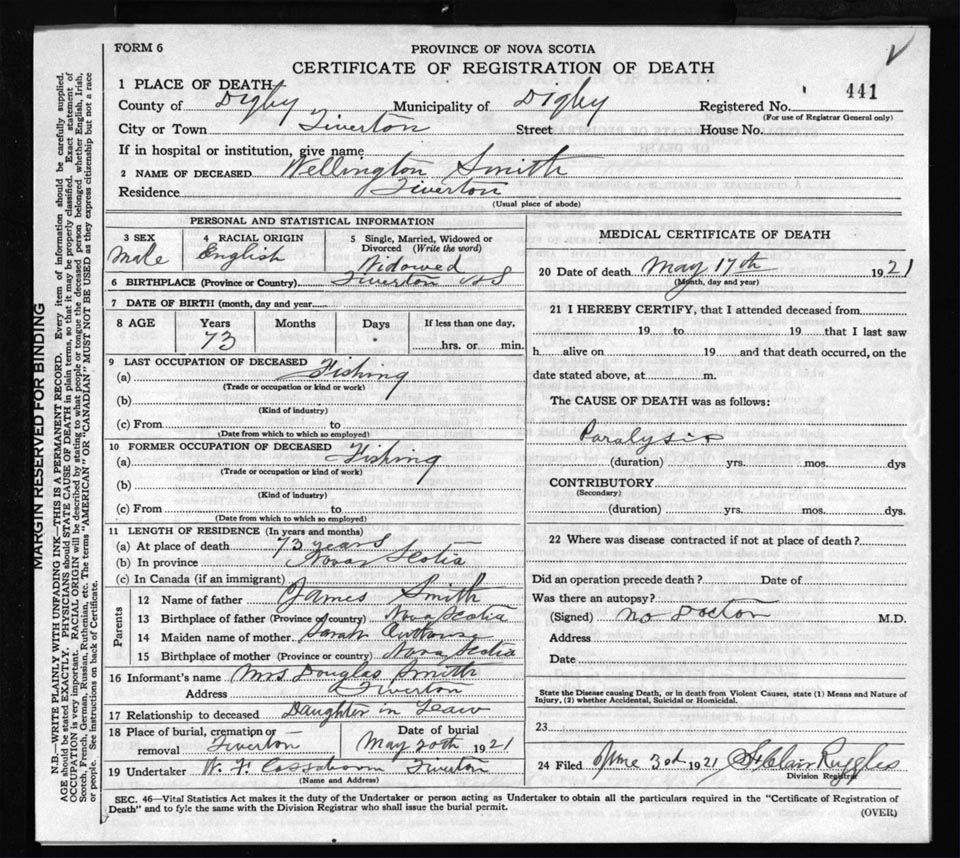 FORM 6
PROVINCE OF NOVA SCOTIA
CERTIFICATE OF REGISTRATION OF DEATH
1 PLACE OF DEATH
County of Digby Municipality of Digby Registered No. 441
(For use of Registrar General only)
City or Town Tiverton Street House No.
If in hospital or institution, give name
2 NAME OF DECEASED Wellington Smith
Residence Tiverton
(Usual place of abode)
PERSONAL AND STATISTICAL INFORMATION
3 SEX 4 RACIAL ORIGIN 5 Single, Married, Widowed or Divorced (Write the word)
Male English Widowed
6 BIRTHPLACE (Province or Country) Tiverton NS
7 DATE OF BIRTH (month, day and year)
8 AGE Years Months Days If less than one day,
73 hrs. or min.
9 LAST OCCUPATION OF DECEASED
(a) Fishing
(Trade or occupation or kind or work)
(b)
(Kind of industry)
(c) From to
(Date from which to which so employed)
10 FORMER OCCUPATION OF DECEASED
(a) Fishing
(Trade or occupation or kind of work)
(b)
(Kind of industry)
(c) From to
(Date from which to which so employed)
11 LENGTH OF RESIDENCE (In years and months)
(a) At place of death 73 years
(b) In province Nova Scotia
(c) In Canada (if an immigrant)
Parents
12 Name of father James Smith
13 Birthplace of father (Province or country) Nova Scotia
14 Maiden name of mother Sarah
15 Birthplace of mother (Province or country) Nova Scotia
16 Informant's name Mrs Douglas Smith
Address Tiverton
17 Relationship to deceased Daughter in Law
18 Place of burial, cremation or removal Tiverton
Date of burial May 20th 1921
19 Undertaker W. F. Cossaboom Tiverton
(Name and Address)
MEDICAL CERTIFICATE OF DEATH
20 Date of death May 17th 1921
(Month, day and year)
21 I HEREBY CERTIFY, that I attended deceased from
19 to 19 that I last saw
h alive on 19 and that death occurred, on the
date stated above, at m.
The CAUSE OF DEATH was as follows:
Paralysis
(duration) yrs. mos. dys
CONTRIBUTORY
(Secondary)
(duration) yrs. mos. dys.
22 Where was disease contracted if not at place of death?
Did an operation precede death? Date of
Was there an autopsy?
(Signed) No Doctor M.D.
Address
Date
State the Disease causing Death, or in death from Violent Causes, state (1) Means and Nature of
Injury, (2) whether Accidental, Suicidal or Homicidal.
23
24 Filed June 3rd 1921 St Clair Ruggles
Division Registrar
SEC. 46—Vital Statistics Act makes it the duty of the Undertaker or person acting as Undertaker to obtain all the particulars required in the "Certificate of Registration of
Death" and to fyle the same with the Division Registrar who shall issue the burial permit.
(OVER)
MARGIN RESERVED FOR BINDING
N.B.—WRITE PLAINLY WITH UNFADING INK—THIS IS A PERMANENT RECORD. Every item of information should be carefully supplied.
AGE should be stated EXACTLY. PHYSICIANS should STATE CAUSE OF DEATH in plain terms, so that it may be properly classified. Exact statement of
OCCUPATION is very important. RACIAL ORIGIN will be described by stating to what people or tongue the deceased person belonged whether English, Irish,
Scotch, French, German, Russian, Ruthenian, etc. The terms "AMERICAN" OR "CANADIAN" MUST NOT BE USED as they express citizenship but not a race
or people. See instructions on back of Certificate.